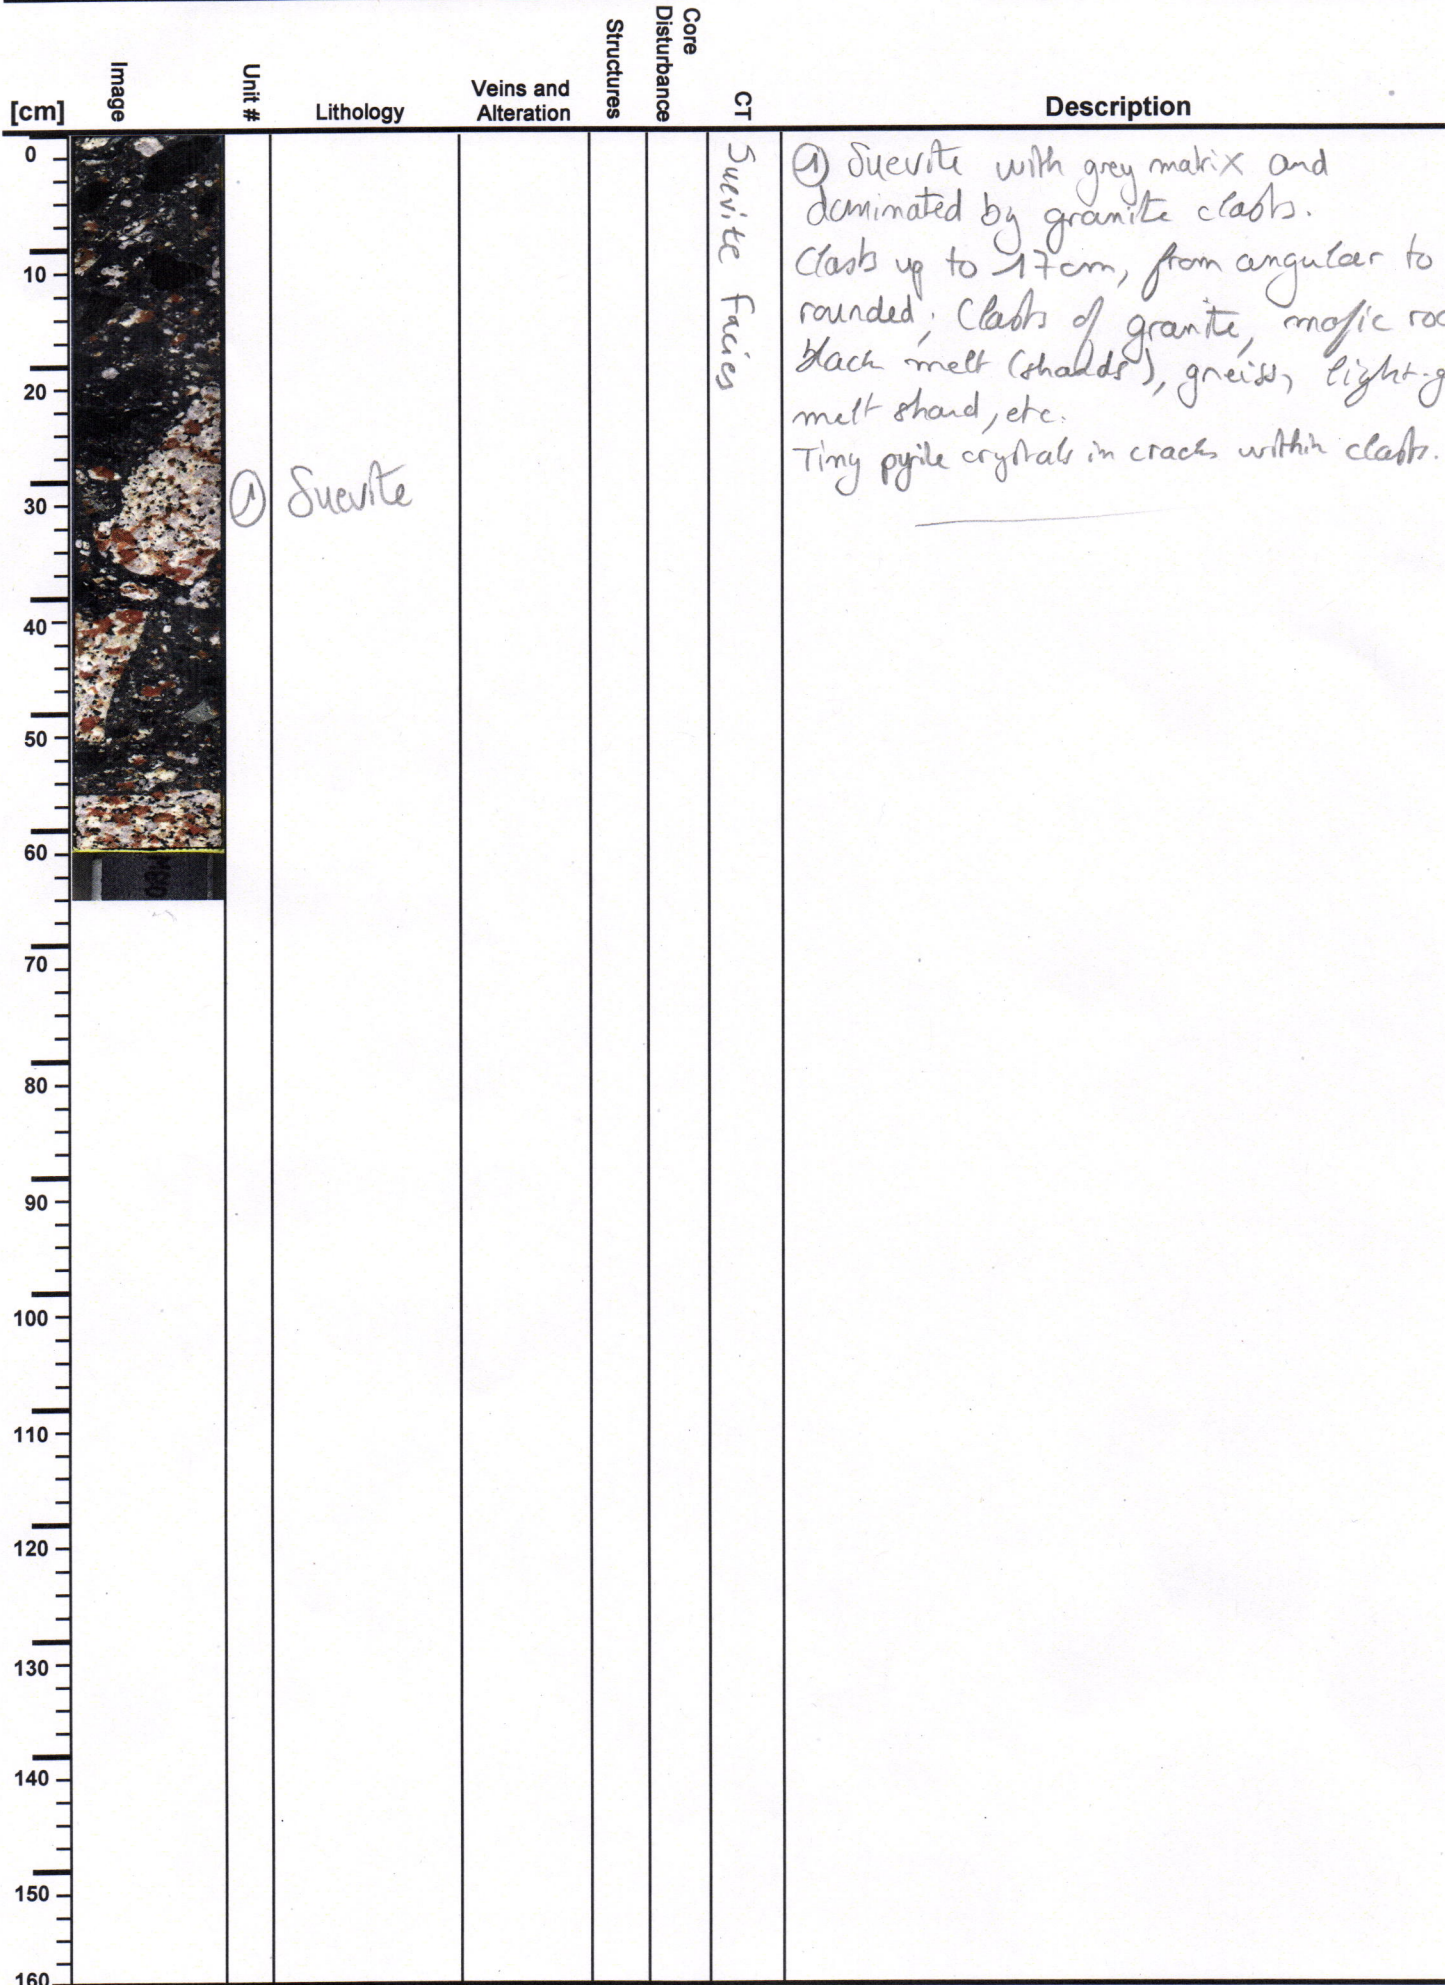 [cm]
Image
Unit #
Lithology
Veins and
Alteration
Structures
Core
Disturbance
CT
Description
0
10
20
30
40
50
60
70
80
90
100
110
120
130
140
150
160
① Suevite
Suevite Facies
① Suevite with grey matrix and
dominated by granite clasts.
Clasts up to 17cm, from angular to
rounded; Clasts of granite, mafic roc
black melt (shards), gneiss, light-g
melt shard, etc.
Tiny pyrite crystals in cracks within clasts.